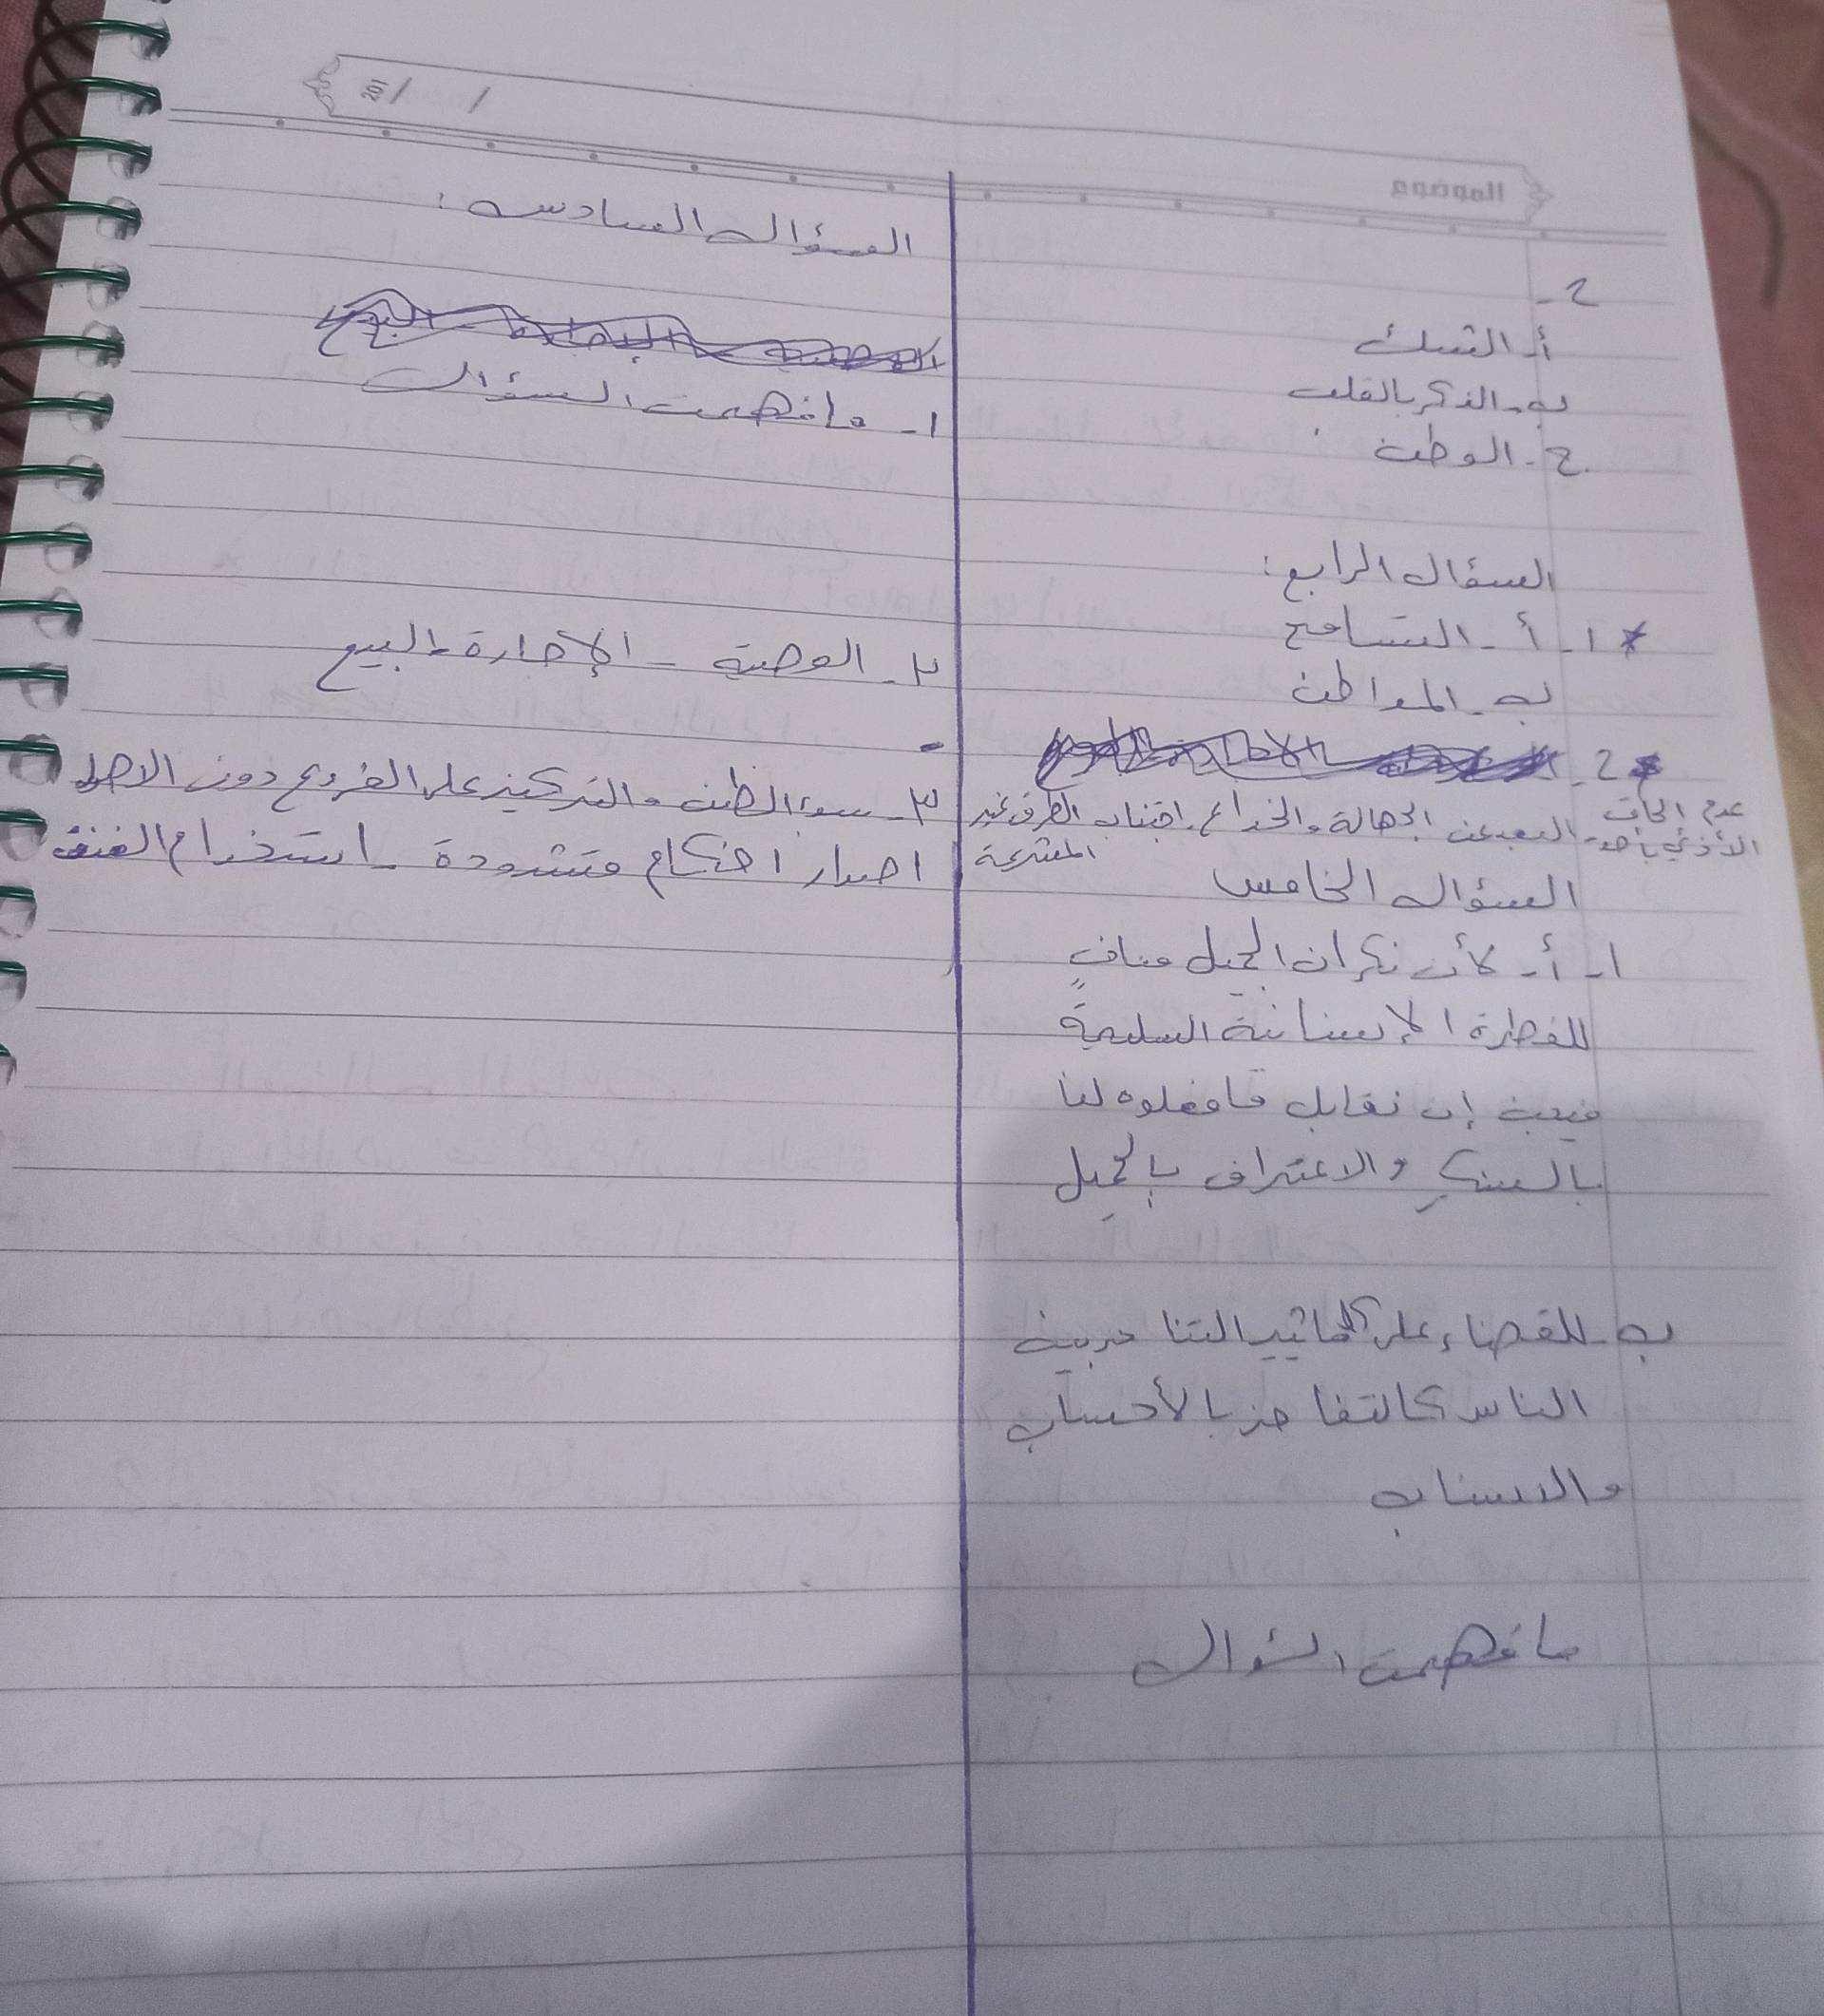 الموضوع
/ / 201
2 -
أ - التمسك
ب - الذكر بالقلب
ج - الوطن
السؤال الرابع:
* 1 - أ - التسامح
ب - المواطن
* 2 -
عدم الحاق الأذى بأحد - البعد عن الجهالة والخداع - اجتناب الطرق غير المشرعة
السؤال الخامس
1 - أ - لأن نكران الجميل منافٍ
للفطرة الإنسانية السليمة
فيجب إن نقابل مافعلوه لنا
بالشكر والاعتراف بالجميل
ب - للقضاء على التناحر بين
الناس كالتفاخر بالأحساب
والانساب
مافهمت السؤال
السؤال السادس:
1 - مافهمت السؤال
٢ - الوصية - الإجارة - البيع
-
٣ - سوء الظن - والتركيز على الفروع دون الاصل
اصدار احكام متشددة - استخدام العنف